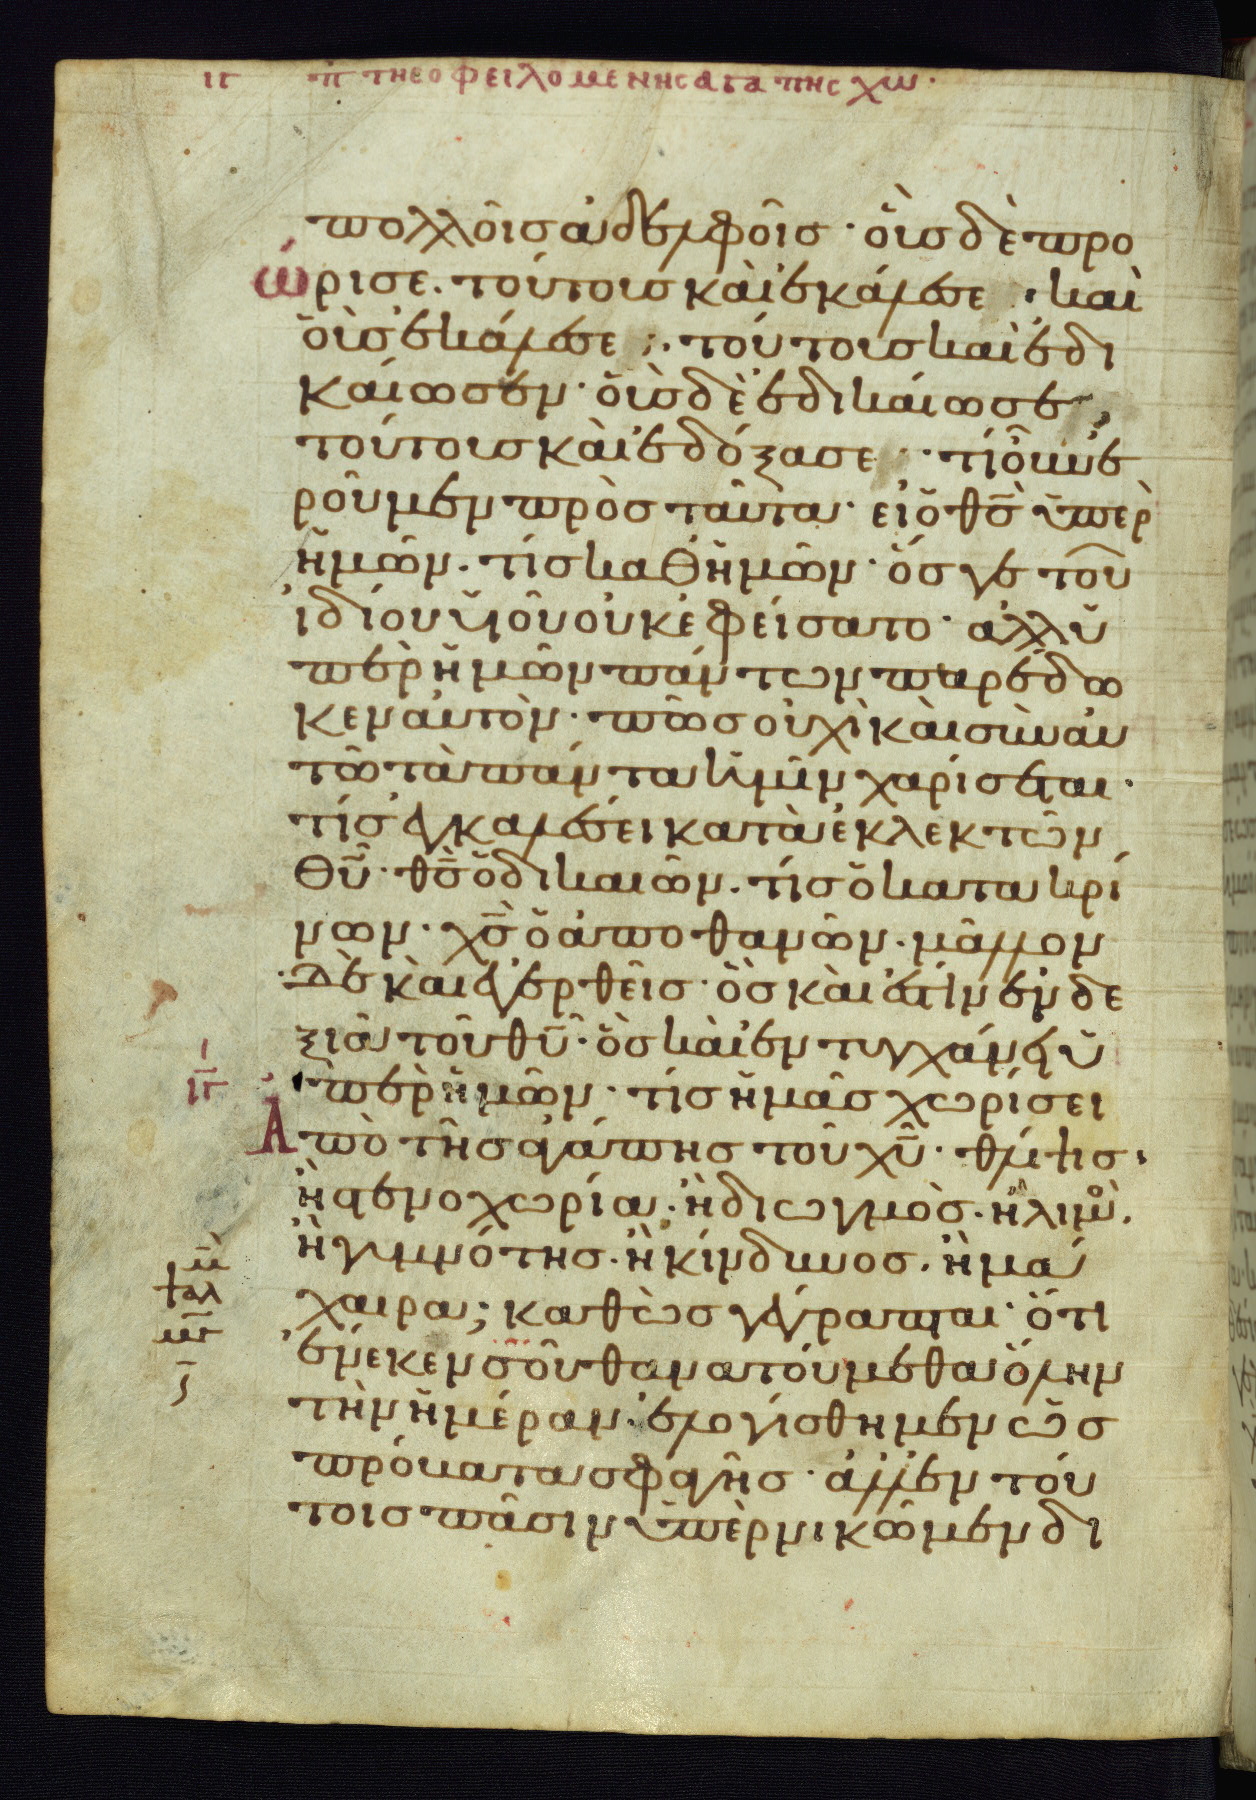 ιγ π τησ οφειλομενησ αγαπησ χω·
πολλοῖσ ἀδελφοῖσ · οὓσ δὲ προ
ώρισε. τούτουσ καὶ ἐκάλεσε · καὶ
οὓσ ἐκάλεσε ·. τούτουσ καὶ ἐδι
καίωσεν · οὓσ δὲ ἐδικάιωσε,
τούτουσ καὶ ἐδόξασε · τί οὖν ἐ
ροῦμεν πρὸσ ταῦτα · εἰ ὁ θ̅σ̅ ὑπὲρ
ἡμῶν. τίσ καθ ἡμῶν · ὅσ γε τοῦ
ἰδίου υἱοῦ οὐκ ἐφείσατο · ἀλλ ὑ
πὲρ ἡμῶν πάντων παρέδω
κεν αὐτὸν · πῶσ οὐχὶ καὶ σὺν αὐ
τῶ τὰ πάντα ἡμῖν χαρίσεται ·
τίσ ἐγκαλέσει κατὰ ἐκλεκτῶν
θ̅υ̅ · θ̅σ̅ ὁ δικαιῶν. τίσ ὁ κατακρί
νων · χ̅σ̅ ὁ ἀποθανῶν. μᾶλλον
δὲ καὶ ἐγερθεῖσ · ὃσ καὶ ἐστὶν ἐν δε
ξιᾶ τοῦ θ̅υ̅ · ὃσ καὶ ἐντυγχάνει ὑ
πὲρ ἡμῶν · τίσ ἡμᾶσ χωρίσει
ιγ
Ἀπὸ τῆσ ἀγάπησ τοῦ χ̅υ̅ · θλίψισ ·
ἢ στενοχωρία · ἢ διωγμὸσ. ἢ λιμὸσ.
ἢ γυμνότησ. ἢ κίνδυνοσ. ἢ μά
χαιρα; καθὼσ γέγραπται · ὅτι
ψαλ
μγ
ἕνεκεν σοῦ θανατούμεθα ὅλην
τὴν ἡμέραν · ἐλογίσθημεν ὡσ
πρόβατα σφαγῆσ · ἀλλ ἐν τού
τοισ πᾶσιν ὑπὲρνικῶμεν δι